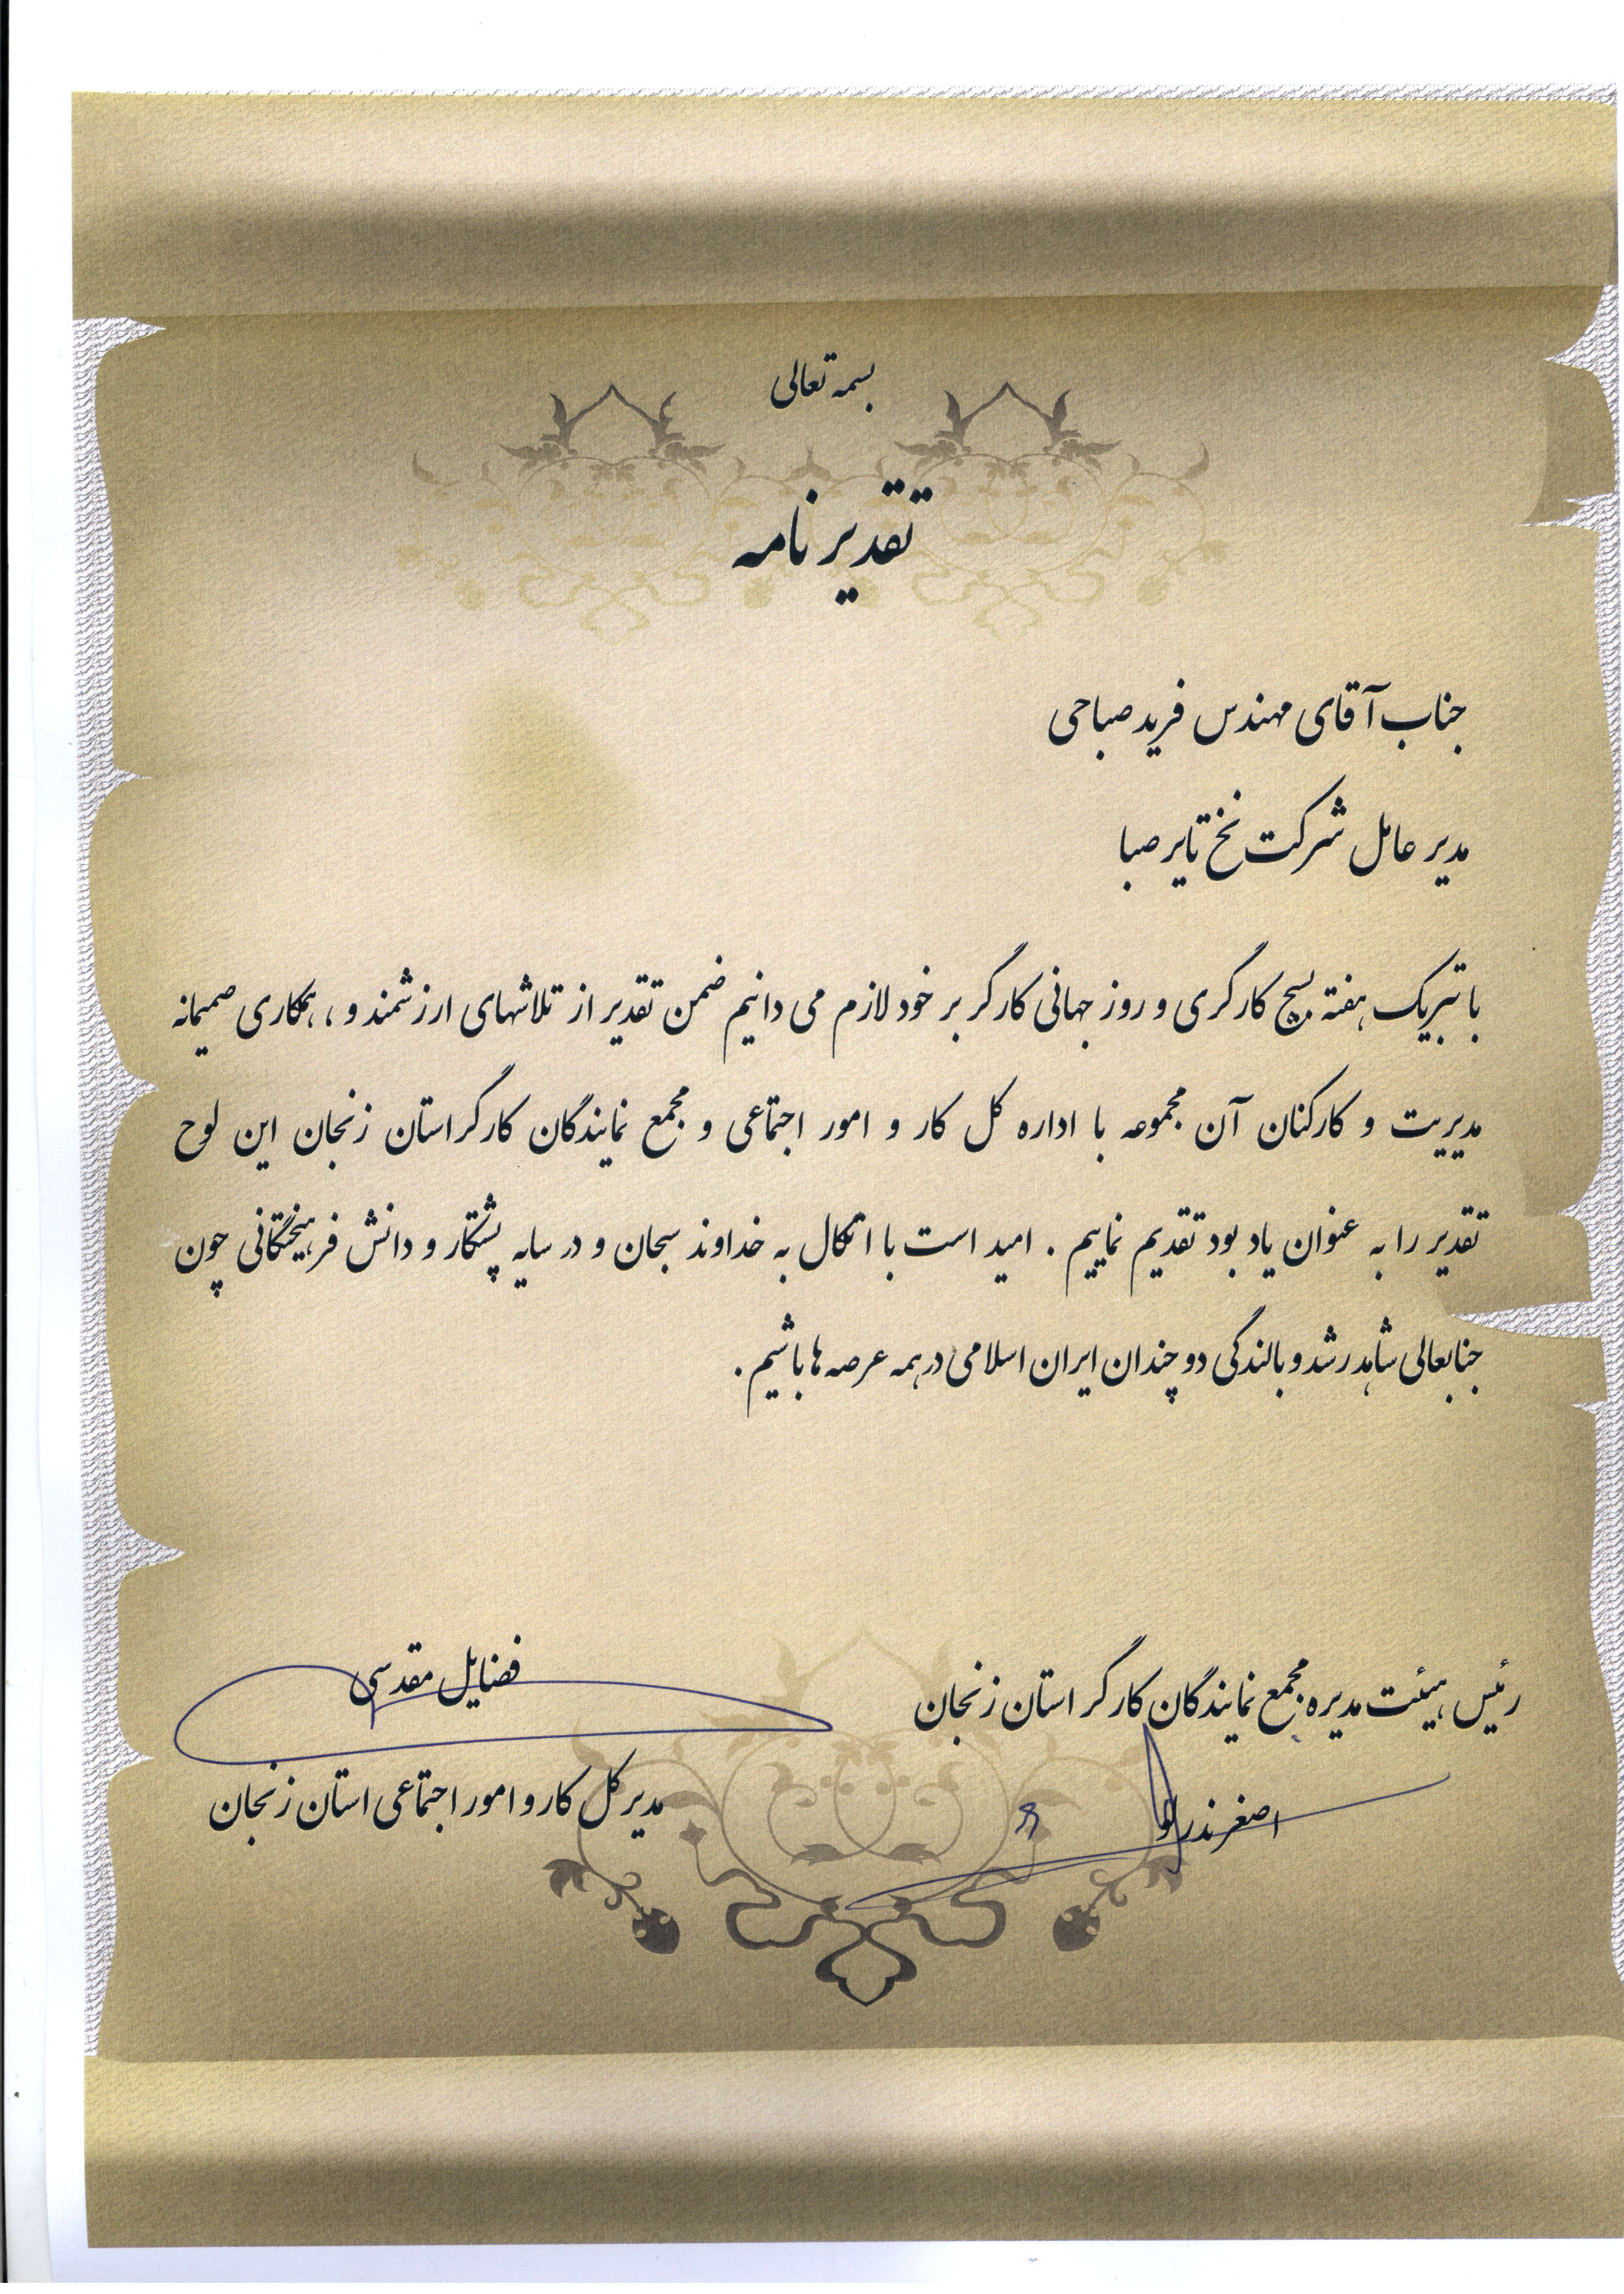 بسمه تعالی
تقدیر نامه
جناب آقای مهندس فرید صباحی
مدیر عامل شرکت نخ تایر صبا
با تبریک هفته بسیج کارگری و روز جهانی کارگر بر خود لازم می دانیم ضمن تقدیر از تلاشهای ارزشمند و ، همکاری صمیمانه
مدیریت و کارکنان آن مجموعه با اداره کل کار و امور اجتماعی و مجمع نمایندگان کارگر استان زنجان این لوح
تقدیر را به عنوان یاد بود تقدیم نماییم . امید است با اتکال به خداوند سبحان و در سایه پشتکار و دانش فرهیختگانی چون
جنابعالی شاهد رشد و بالندگی دو چندان ایران اسلامی در همه عرصه ها باشیم .
رئیس هیئت مدیره مجمع نمایندگان کارگر استان زنجان
اصغر نذرلو
فضایل مقدسی
مدیر کل کار و امور اجتماعی استان زنجان